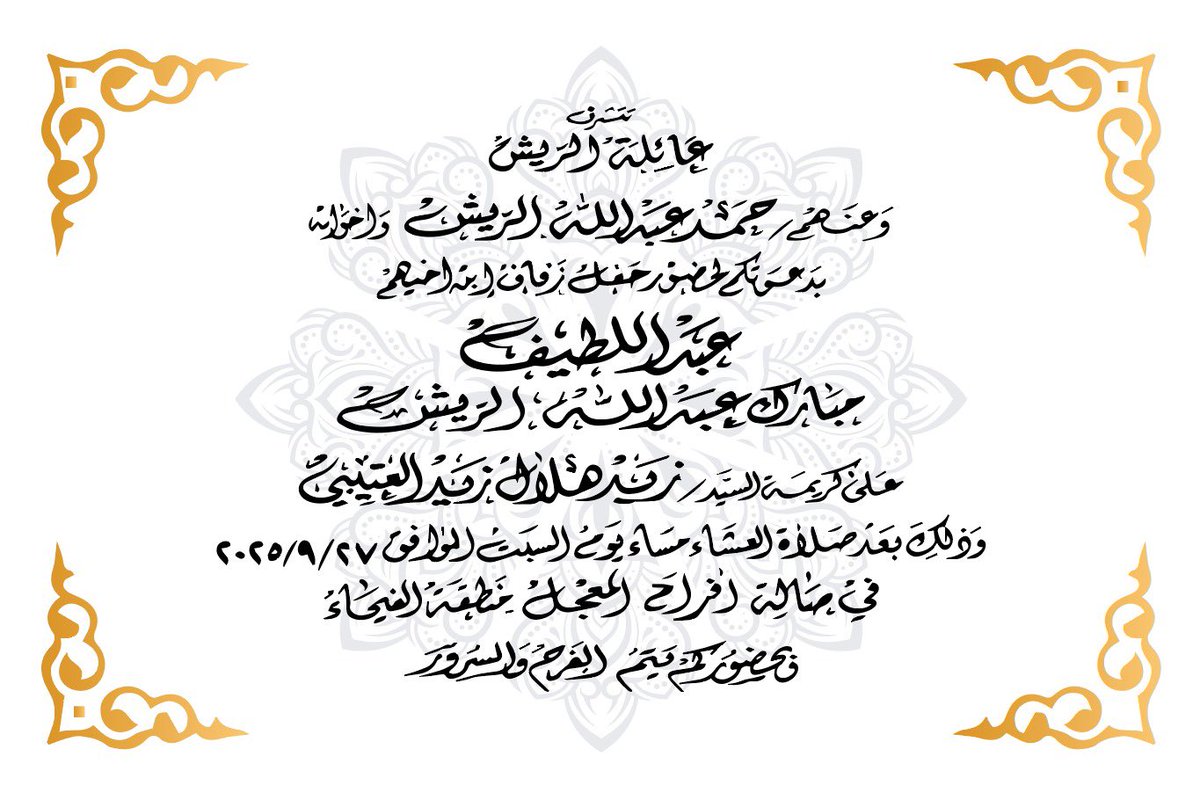 تتشرف
عائلة الريش
وعنهم / حمد عبدالله الريش واخوانه
بدعوتكم لحضور حفل زفاف إبن اخيهم
عبداللطيف
مبارك عبدالله الريش
على كريمة السيد / زيد هلال زيد العتيبي
وذلك بعد صلاة العشاء مساء يوم السبت الموافق ٢٠٢٥/٩/٢٧
في صالة افراح المعجل منطقة الفيحاء
بحضوركم يتم الفرح والسرور